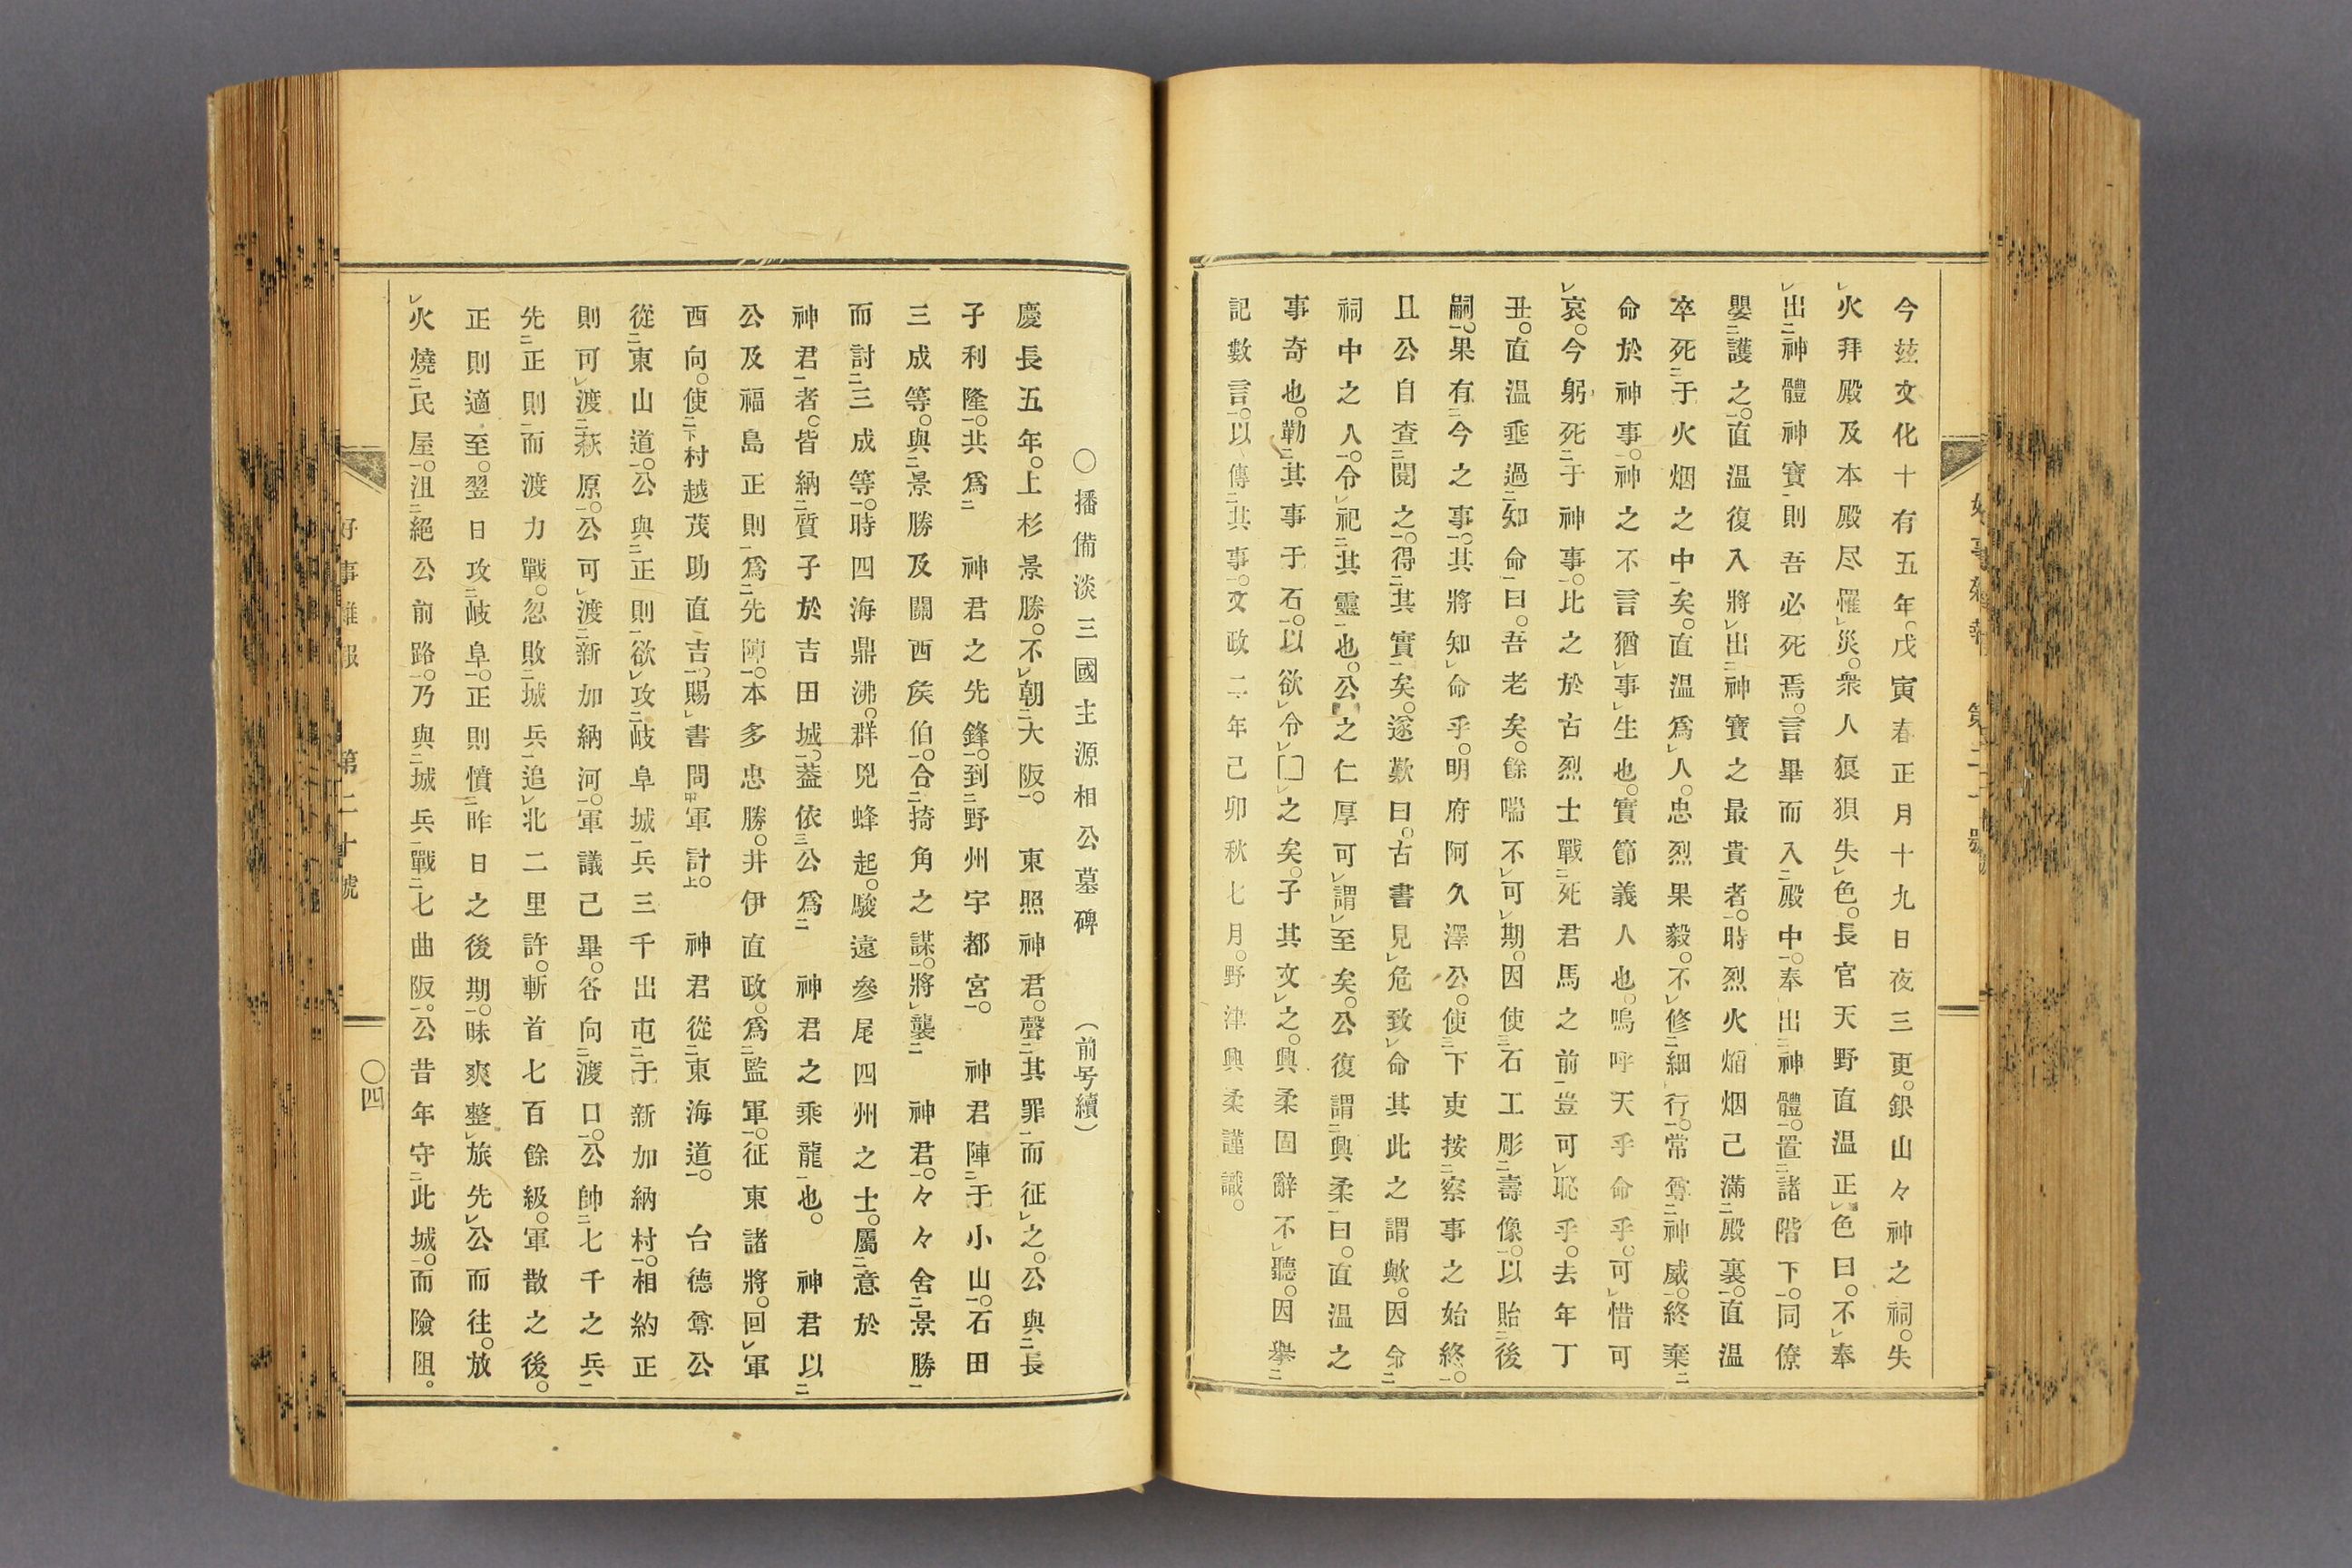 好事雜報　第二十號
今玆文化十有五年。戊寅春正月十九日夜三更。銀山々神之祠。失
火拜殿及本殿尽罹災。衆人狼狽失色。長官天野直温正色曰。不奉
出神體神寶則吾必死焉。言畢而入殿中。奉出神體。置諸階下。同僚
嬰護之。直温復入將出神寶之最貴者。時烈火熖烟已滿殿裏。直温
卒死于火烟之中矣。直温爲人。忠烈果毅。不修細行。常尊神威。終棄
命於神事。神之不言猶事生也。實節義人也。嗚呼天乎命乎。可惜可
哀。今躬死于神事。比之於古烈士戰死君馬之前豈可恥乎。去年丁
丑。直温垂過知命曰。吾老矣。餘喘不可期。因使石工彫壽像。以貽後
嗣。果有今之事。其將知命乎。明府阿久澤公。使下吏按察事之始終。
且公自査閱之。得其實矣。遂歎曰。古書見危致命其此之謂歟。因命
祠中之人。令祀其靈也。公之仁厚可謂至矣。公復謂興柔曰。直温之
事奇也。勒其事于石。以欲令□之矣。子其文之。興柔固辭不聽。因擧
記數言。以傳其事。文政二年己卯秋七月。野津興柔謹識。
○播備淡三國主源相公墓碑　（前号續）
慶長五年。上杉景勝。不朝大阪。　東照神君。聲其罪而征之。公與長
子利隆。共爲　神君之先鋒。到野州宇都宮。　神君陣于小山。石田
三成等。與景勝及關西矦伯。合掎角之謀。將襲　神君。々々舍景勝
而討三成等。時四海鼎沸。群兇蜂起。駿遠參尾四州之士。屬意於
神君者。皆納質子於吉田城。葢依公爲　神君之乘龍也。　神君以
公及福島正則爲先陣。本多忠勝。井伊直政。爲監軍。征東諸將。回軍
西向。使村越茂助直吉。賜書問軍計。　神君從東海道。　台德尊公
從東山道。公與正則欲攻岐阜城兵三千出屯于新加納村。相約正
則可渡萩原。公可渡新加納河。軍議已畢。各向渡口。公帥七千之兵
先正則而渡力戰。忽敗城兵追北二里許。斬首七百餘級。軍散之後。
正則適至。翌日攻岐阜。正則憤昨日之後期。昧爽整旅先公而往。放
火燒民屋。沮絕公前路。乃與城兵戰七曲阪。公昔年守此城。而險阻。
好事雜報　第二十號　〇四